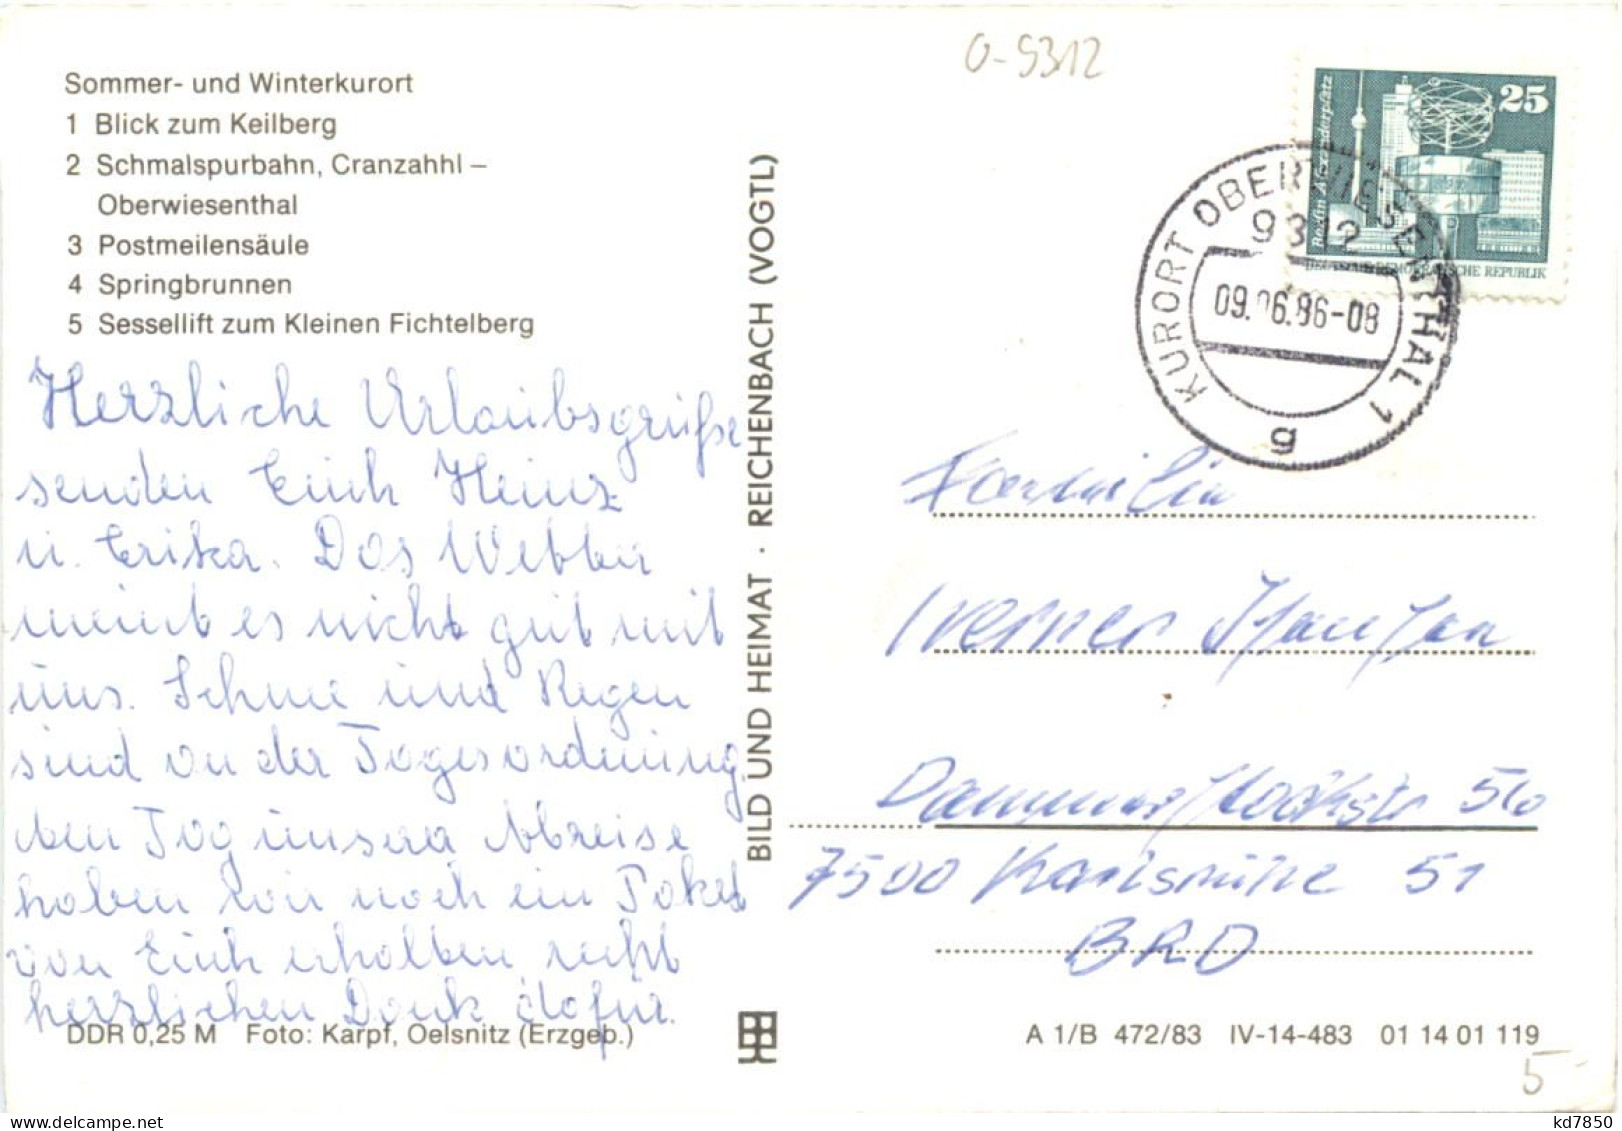 O-9312
Sommer- und Winterkurort
1 Blick zum Keilberg
2 Schmalspurbahn, Cranzahhl –
Oberwiesenthal
3 Postmeilensäule
4 Springbrunnen
5 Sessellift zum Kleinen Fichtelberg
Herzliche Urlaubsgrüße
senden Euch Heinz
u. Erika. Das Wetter
meint es nicht gut mit
uns. Schnee und Regen
sind an der Tagesordnung.
den Tag unserer Abreise
haben wir noch ein Paket
von Euch erhalten, recht
herzlichen Dank dafür.
DDR 0,25 M Foto: Karpf, Oelsnitz (Erzgeb.)
BILD UND HEIMAT · REICHENBACH (VOGTL)
25
Berlin Alexanderplatz
DEUTSCHE DEMOKRATISCHE REPUBLIK
KURORT OBERWIESENTHAL 1
9312
09.06.86-08
g
Familie
Werner
56
7500 Karlsruhe 51
BRD
A 1/B 472/83 IV-14-483 01 14 01 119
5-
kd7850